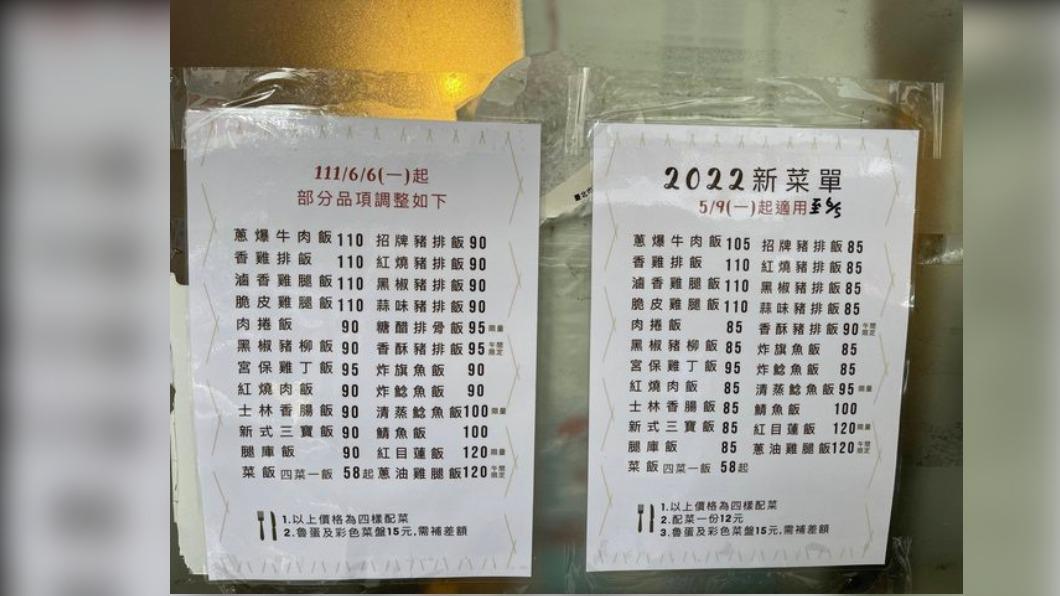 111/6/6(一)起
部分品項調整如下
蔥爆牛肉飯 110 招牌豬排飯 90
香雞排飯 110 紅燒豬排飯 90
滷香雞腿飯 110 黑椒豬排飯 90
脆皮雞腿飯 110 蒜味豬排飯 90
肉捲飯 90 糖醋排骨飯 95 限量
黑椒豬柳飯 90 香酥豬排飯 95 午間限定
宮保雞丁飯 95 炸旗魚飯 90
紅燒肉飯 90 炸鯰魚飯 90
士林香腸飯 90 清蒸鯰魚飯 100 限量
新式三寶飯 90 鯖魚飯 100
腿庫飯 90 紅目蓮飯 120 限量
菜飯 四菜一飯 58起 蔥油雞腿飯 120 午間限定
1.以上價格為四樣配菜
2.魯蛋及彩色菜盤15元,需補差額
2022新菜單
5/9(一)起適用
蔥爆牛肉飯 105 招牌豬排飯 85
香雞排飯 110 紅燒豬排飯 85
滷香雞腿飯 110 黑椒豬排飯 85
脆皮雞腿飯 110 蒜味豬排飯 85
肉捲飯 85 香酥豬排飯 90 午間限定
黑椒豬柳飯 85 炸旗魚飯 85
宮保雞丁飯 95 炸鯰魚飯 85
紅燒肉飯 85 清蒸鯰魚飯 95 限量
士林香腸飯 85 鯖魚飯 100
新式三寶飯 85 紅目蓮飯 120 限量
腿庫飯 85 蔥油雞腿飯 120 午間限定
菜飯 四菜一飯 58起
1.以上價格為四樣配菜
2.配菜一份12元
3.魯蛋及彩色菜盤15元,需補差額